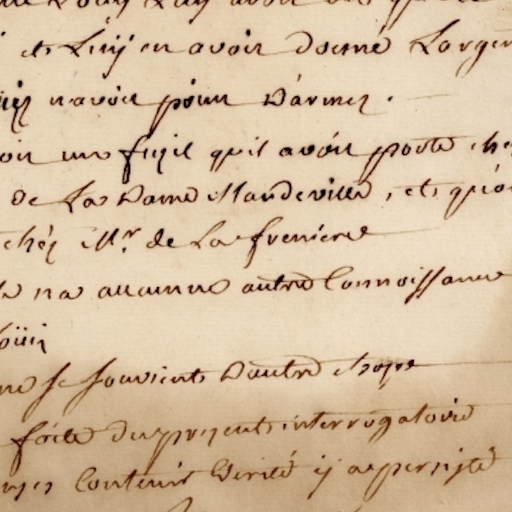 et luy en avoir donné Largen
navoit point D'armes.
oir un fuzil qu'il avoit porté che
de La Dame Mandeville, et qu'o
chéz Mr. de La freniere
na aucune autre Connoissance
ne se souvient Dautre chose
faite du present interrogatoire
Contenir Verité y a persisté